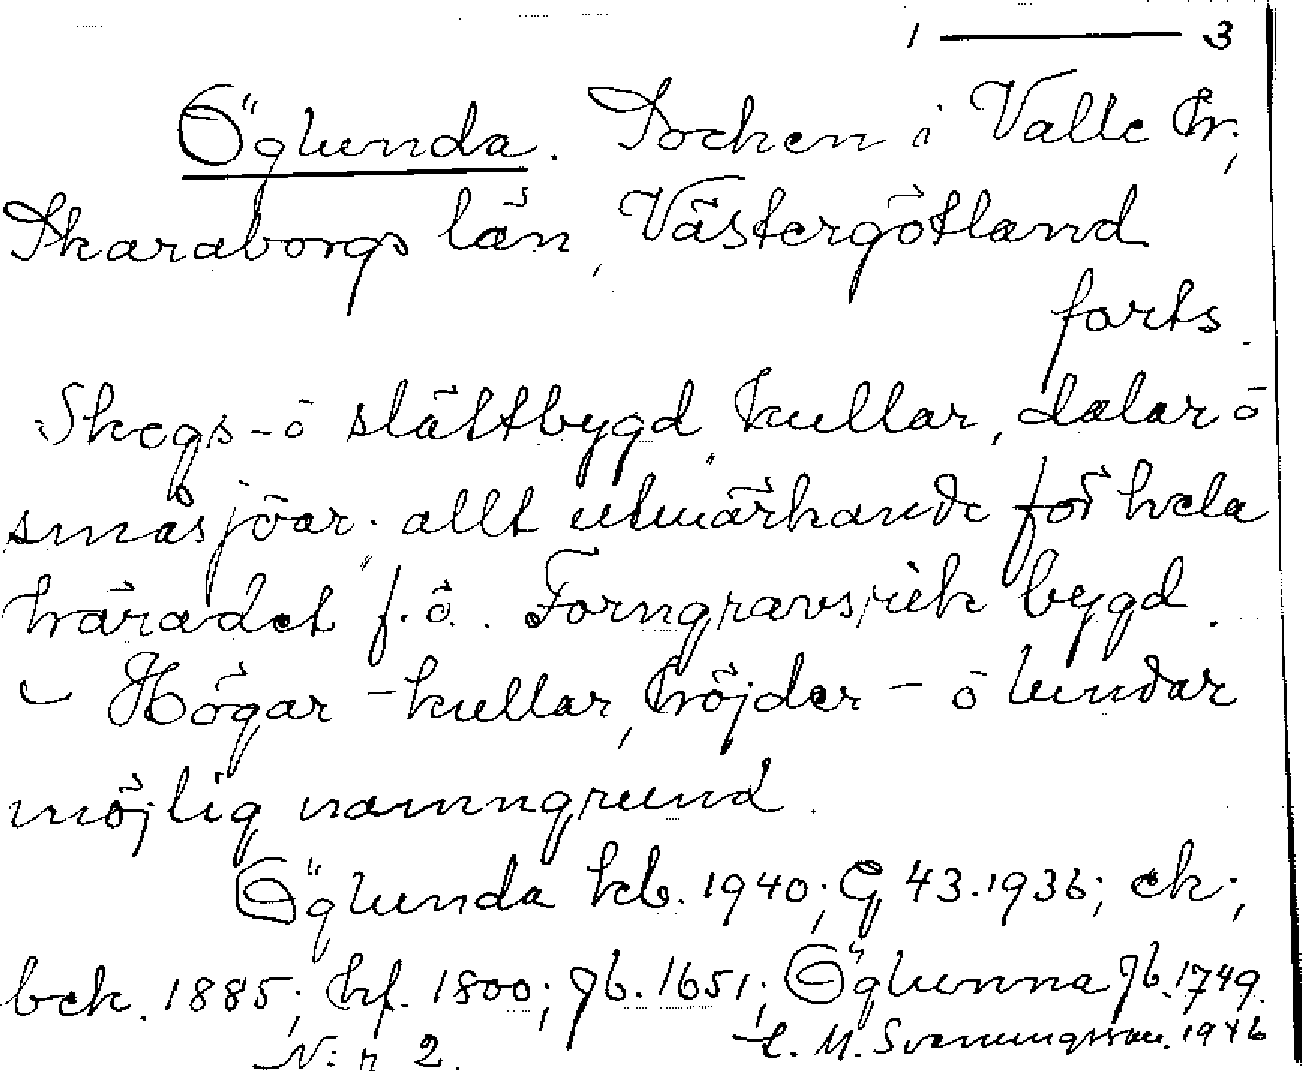 1 — 3
Öglunda. Socken i Valle hr;
Skaraborgs län, Västergötland
forts.
Skogs- ō slättbygd, kullar, dalar ō
småsjöar; allt utmärkande för hela
häradet f. ö. Forngravsrik bygd.
– Högar – kullar, höjder – ō lundar
möjlig namngrund.
Öglunda kb. 1940; G 43. 1936; ek;
bek. 1885; hf. 1800; jb. 1651; Öglunna jb. 1749.
N:r 2. E. M. Svenungsson. 1946